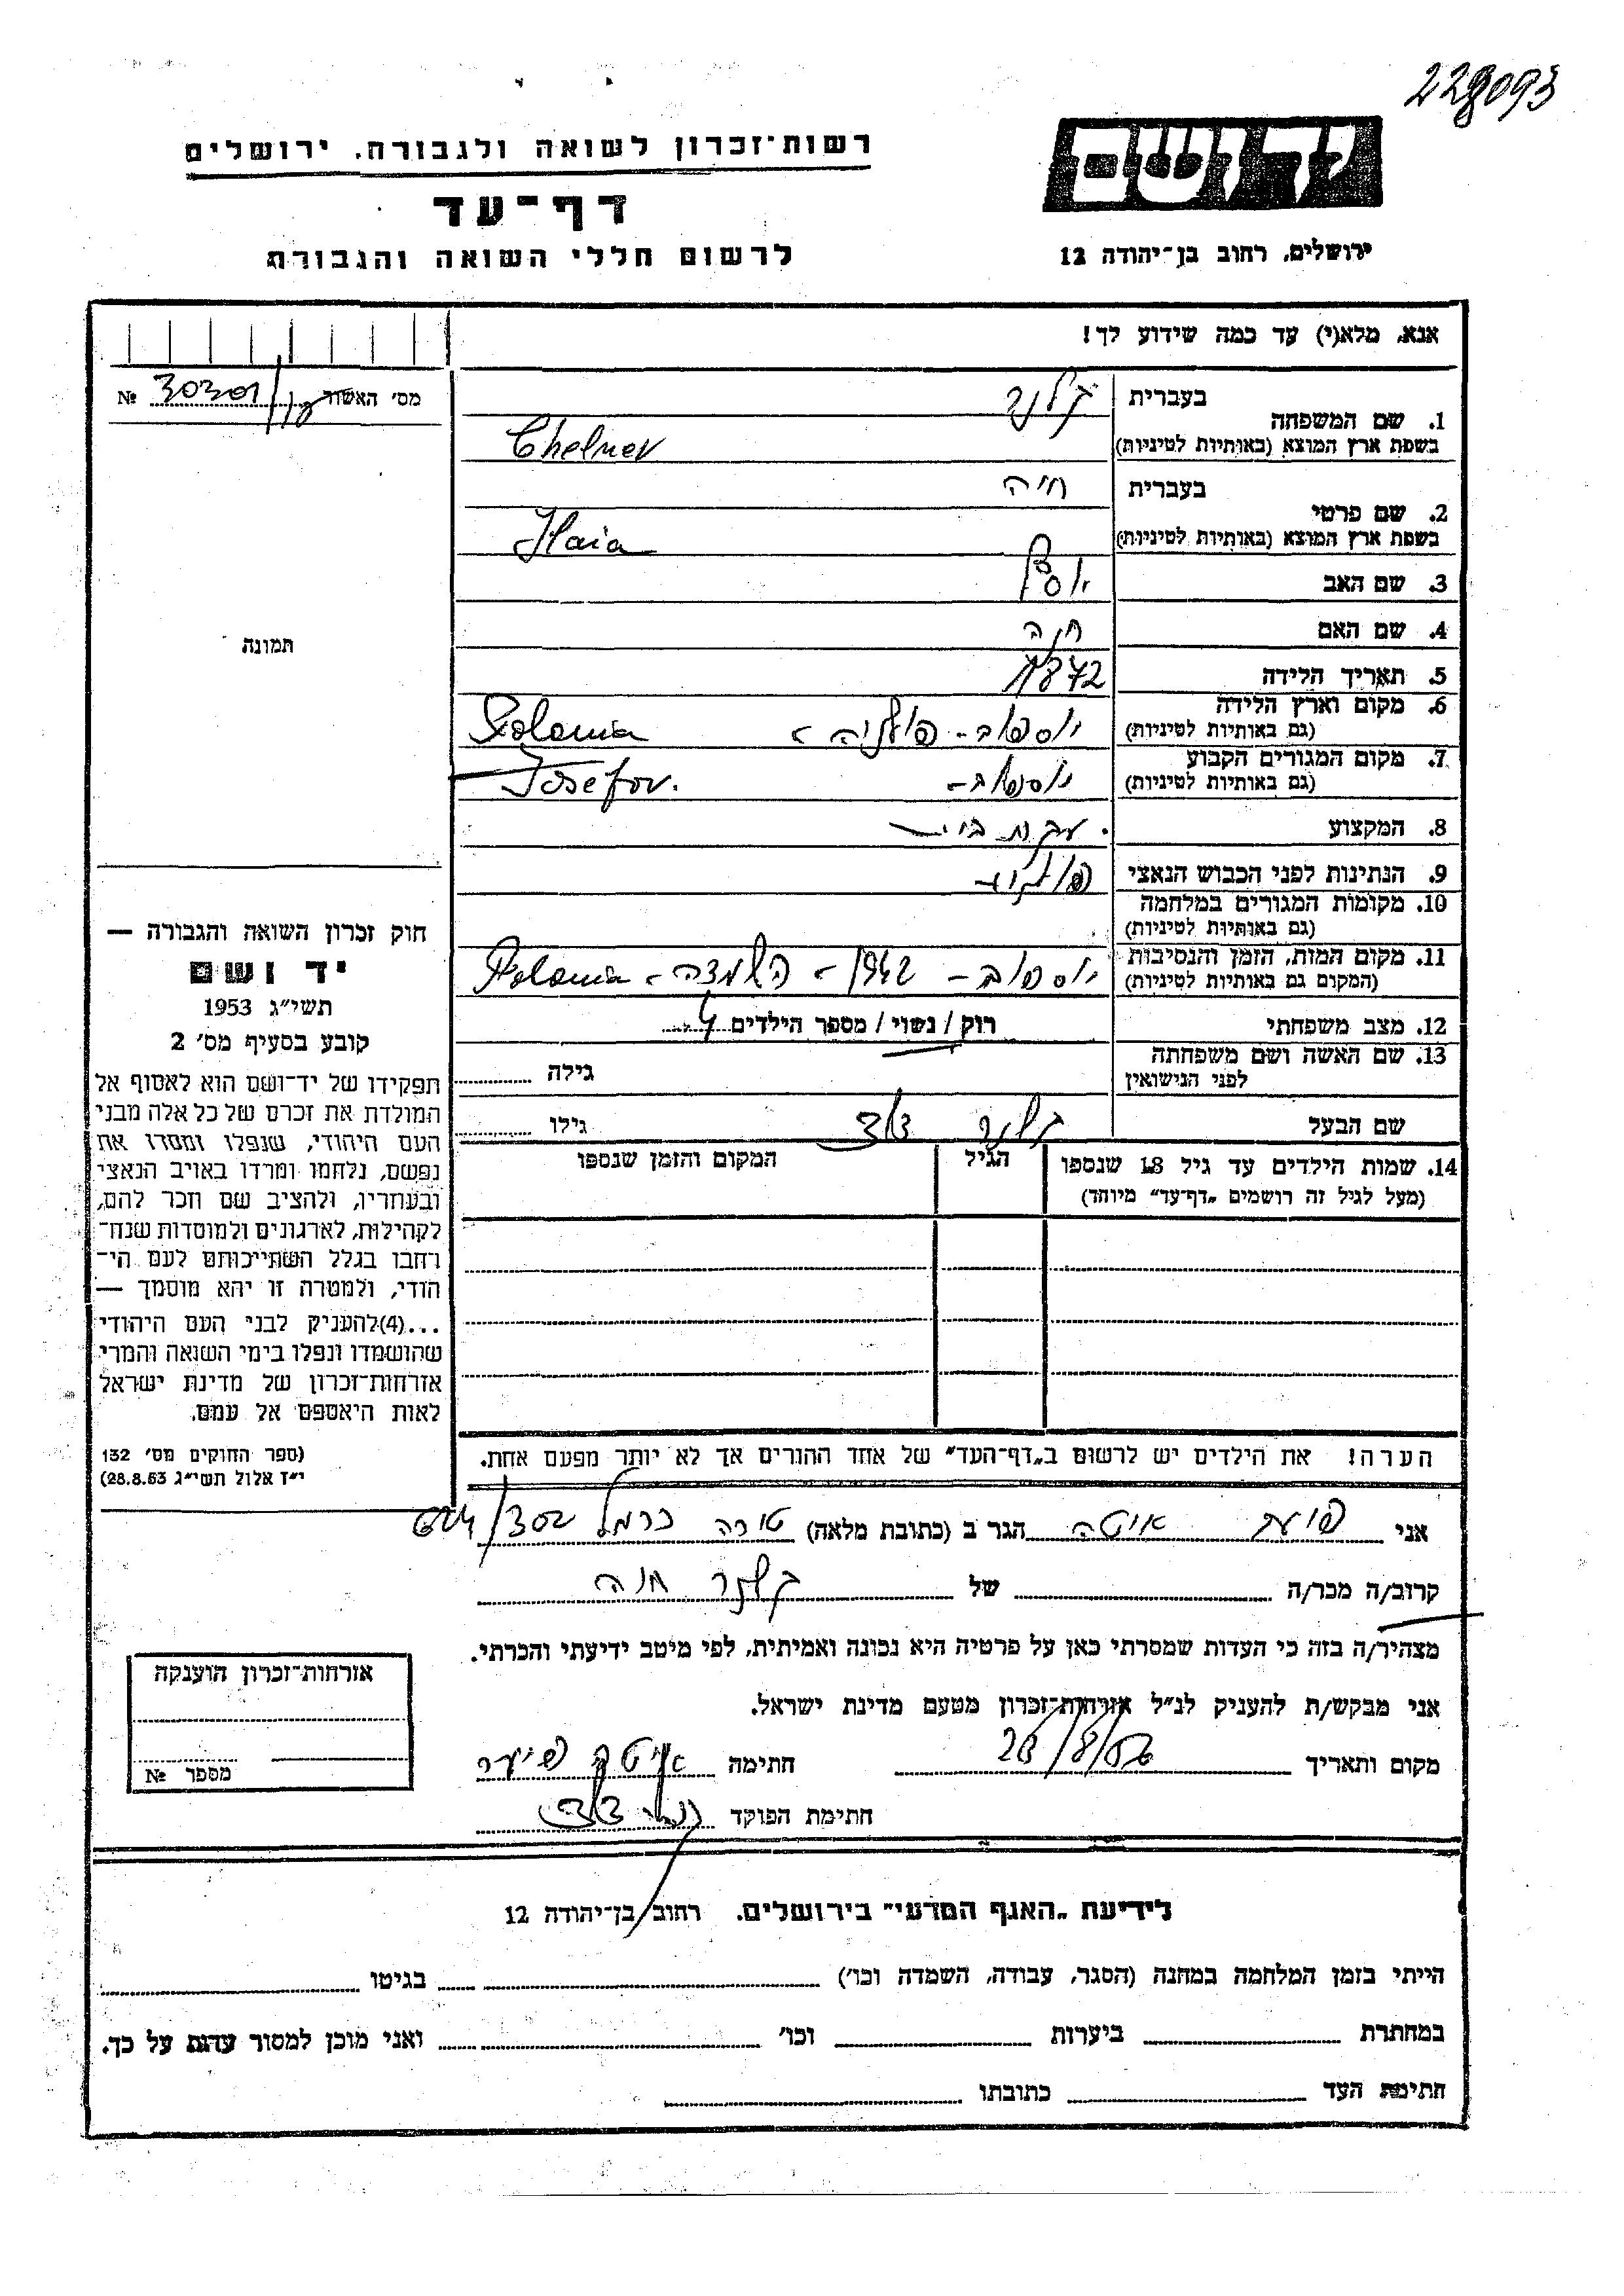 228093
רשות־זכרון לשואה ולגבורה. ירושלים
דף־עד
לרשום חללי השואה והגבורה
יד ושם
ירושלים, רחוב בן־יהודה 12
אנא, מלא(י) עד כמה שידוע לך!
מס׳ האשור 30301 №
1. שם המשפחה
בעברית
בשפת ארץ המוצא (באותיות לטיניות) Chelner
2. שם פרטי
בעברית חיה
בשפת ארץ המוצא (באותיות לטיניות) Haia
3. שם האב יוסף
4. שם האם חנה
5. תאריך הלידה 1872
6. מקום וארץ הלידה יוספוב - פולניה - Polonia
(גם באותיות לטיניות)
7. מקום המגורים הקבוע יוספוב - Josefov.
(גם באותיות לטיניות)
8. המקצוע עקרת בית
9. הנתינות לפני הכבוש הנאצי
10. מקומות המגורים במלחמה
(גם באותיות לטיניות)
11. מקום המות, הזמן והנסיבות יוספוב - 1942 - השמדה - Polonia
(המקום גם באותיות לטיניות)
12. מצב משפחתי רוק / נשוי / מספר הילדים 4
13. שם האשה ושם משפחתה
לפני הנישואין גילה
שם הבעל גילו
14. שמות הילדים עד גיל 18 שנספו הגיל המקום והזמן שנספו
(מעל לגיל זה רושמים „דף־עד״ מיוחד)
תמונה
חוק זכרון השואה והגבורה —
יד ושם
תשי״ג 1953
קובע בסעיף מס׳ 2
תפקידו של יד־ושם הוא לאסוף אל
המולדת את זכרם של כל אלה מבני
העם היהודי, שנפלו ומסרו את
נפשם, נלחמו ומרדו באויב הנאצי
ובעוזריו, ולהציב שם וזכר להם,
לקהילות, לארגונים ולמוסדות שנח־
רבו בגלל השתייכותם לעם הי־
הודי, ולמטרה זו יהא מוסמך —
...(4)להעניק לבני העם היהודי
שהושמדו ונפלו בימי השואה והמרי
אזרחות־זכרון של מדינת ישראל
לאות היאספם אל עמם.
(ספר החוקים מס׳ 132
י״ז אלול תשי״ג 28.8.53)
הערה! את הילדים יש לרשום ב„דף־העד״ של אחד ההורים אך לא יותר מפעם אחת.
אני איטה הגר ב (כתובת מלאה) טירה כרמל 302/624
קרוב/ה מכר/ה של חיה
מצהיר/ה בזה כי העדות שמסרתי כאן על פרטיה היא נכונה ואמיתית, לפי מיטב ידיעתי והכרתי.
אני מבקש/ת להעניק לנ״ל אזרחות־זכרון מטעם מדינת ישראל.
מקום ותאריך חתימה איטה
חתימת הפוקד
אזרחות־זכרון הוענקה
מספר №
לידיעת „האגף המדעי״ בירושלים. רחוב בן־יהודה 12
הייתי בזמן המלחמה במחנה (הסגר, עבודה, השמדה וכו׳) בגיטו
במחתרת ביערות וכו׳ ואני מוכן למסור עדות על כך.
חתימת העד כתובתו